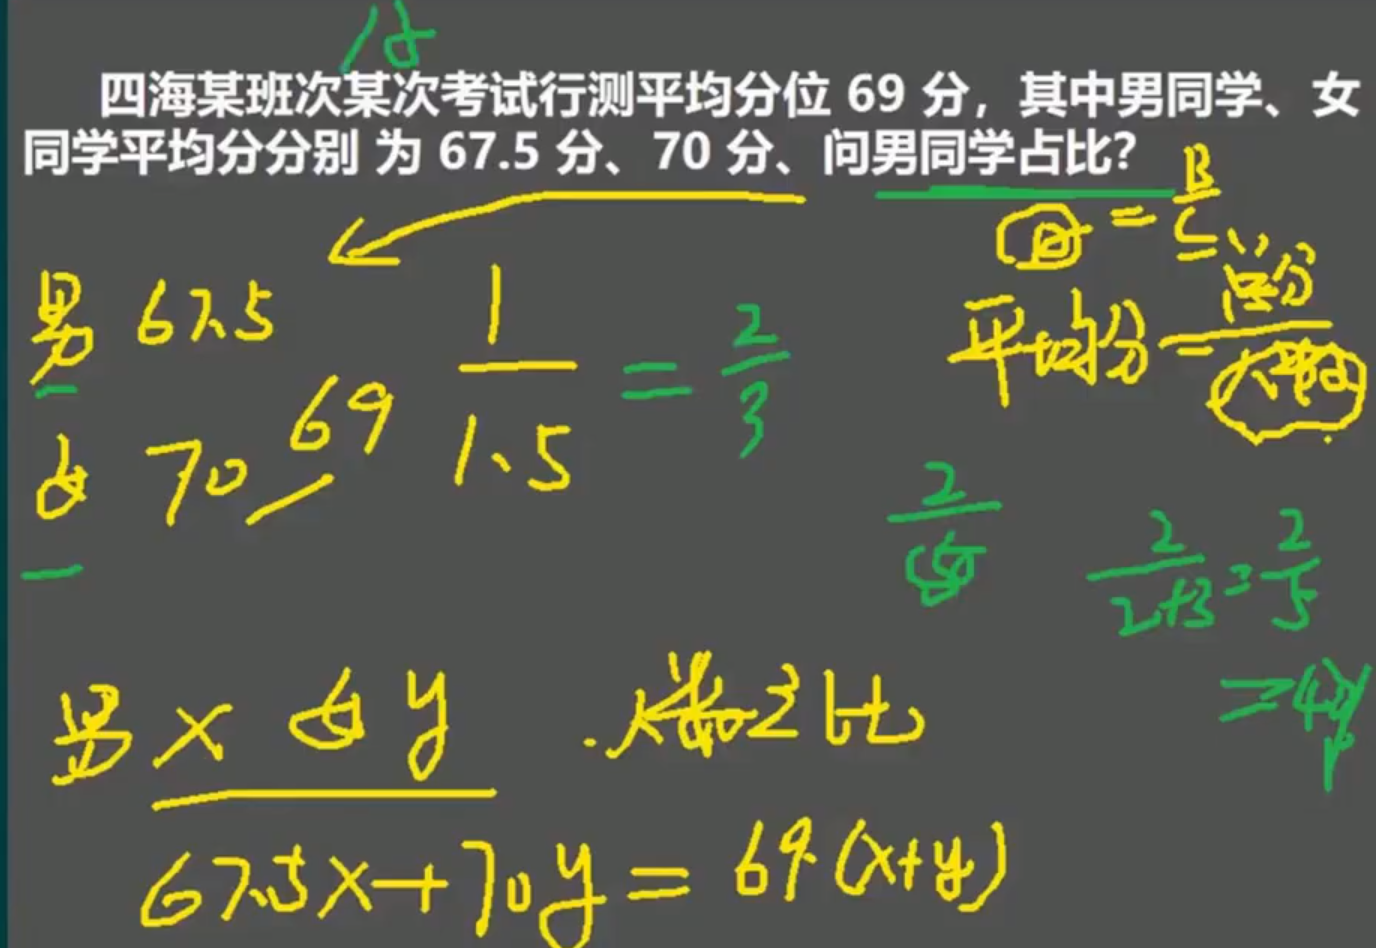 四海某班次某次考试行测平均分位 69 分，其中男同学、女
同学平均分分别 为 67.5 分、70 分、问男同学占比？
B
= C
平均分 = 总分
人数
男 67.5
1
1.5
= 2
3
69
女 70
2
5
2
2+3
= 2
5
= 40%
男 x 女 y
人数之比
67.5x+70y = 69(x+y)